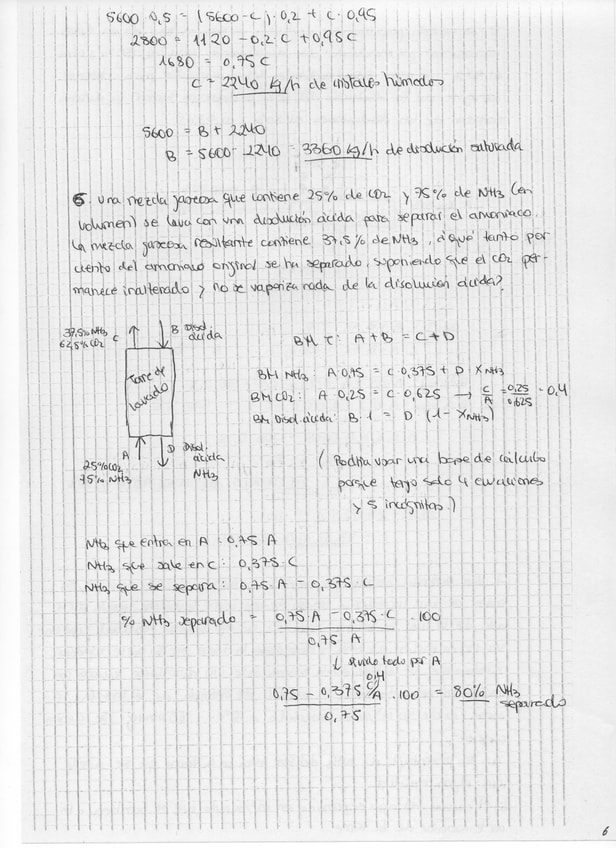 5600 0,5 = (5600-C)·0,2 + C·0,95
2800 = 1120 - 0,2·C + 0,95C
1680 = 0,75C
C = 2240 kg/h de cristales húmedos
5600 = B + 2240
B = 5600 - 2240 = 3360 kg/h de disolución saturada
6. Una mezcla gaseosa que contiene 25% de CO2 y 75% de NH3 (en
volumen) se lava con una disolución ácida para separar el amoniaco.
La mezcla gaseosa resultante contiene 37,5% de NH3, ¿qué tanto por
ciento del amoniaco original se ha separado, suponiendo que el CO2 per-
manece inalterado y no se vaporiza nada de la disolución ácida?
37,5% NH3
62,5% CO2
C
B Disol.
ácida
Torre de
lavado
A
25% CO2
75% NH3
D Disol.
ácida
NH3
BM T: A + B = C + D
BM NH3: A·0,75 = C·0,375 + D·XNH3
BM CO2: A·0,25 = C·0,625 → C/A = 0,25/0,625 = 0,4
BM Disol. ácida: B·1 = D (1 - XNH3)
(Podría usar una base de cálculo
porque tengo solo 4 ecuaciones
y 5 incógnitas.)
NH3 que entra en A: 0,75 A
NH3 que sale en C: 0,375·C
NH3 que se separa: 0,75·A - 0,375·C
% NH3 separado = (0,75·A - 0,375·C)/(0,75 A) ·100
↓ divido todo por A
0,4
(0,75 - 0,375 C/A)/0,75 ·100 = 80% NH3
separado
6